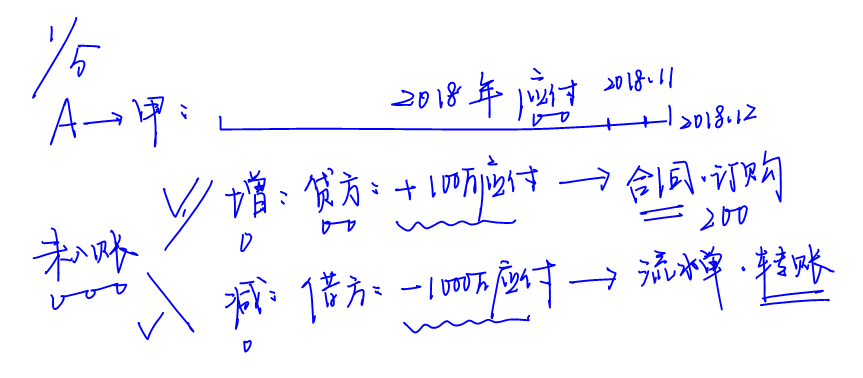 1/5
2018年应付 2018.11
A→甲： 2018.12
增：贷方：+100万应付→合同·订购
200
未入账
减：借方：-1000万应付→流水单·转账